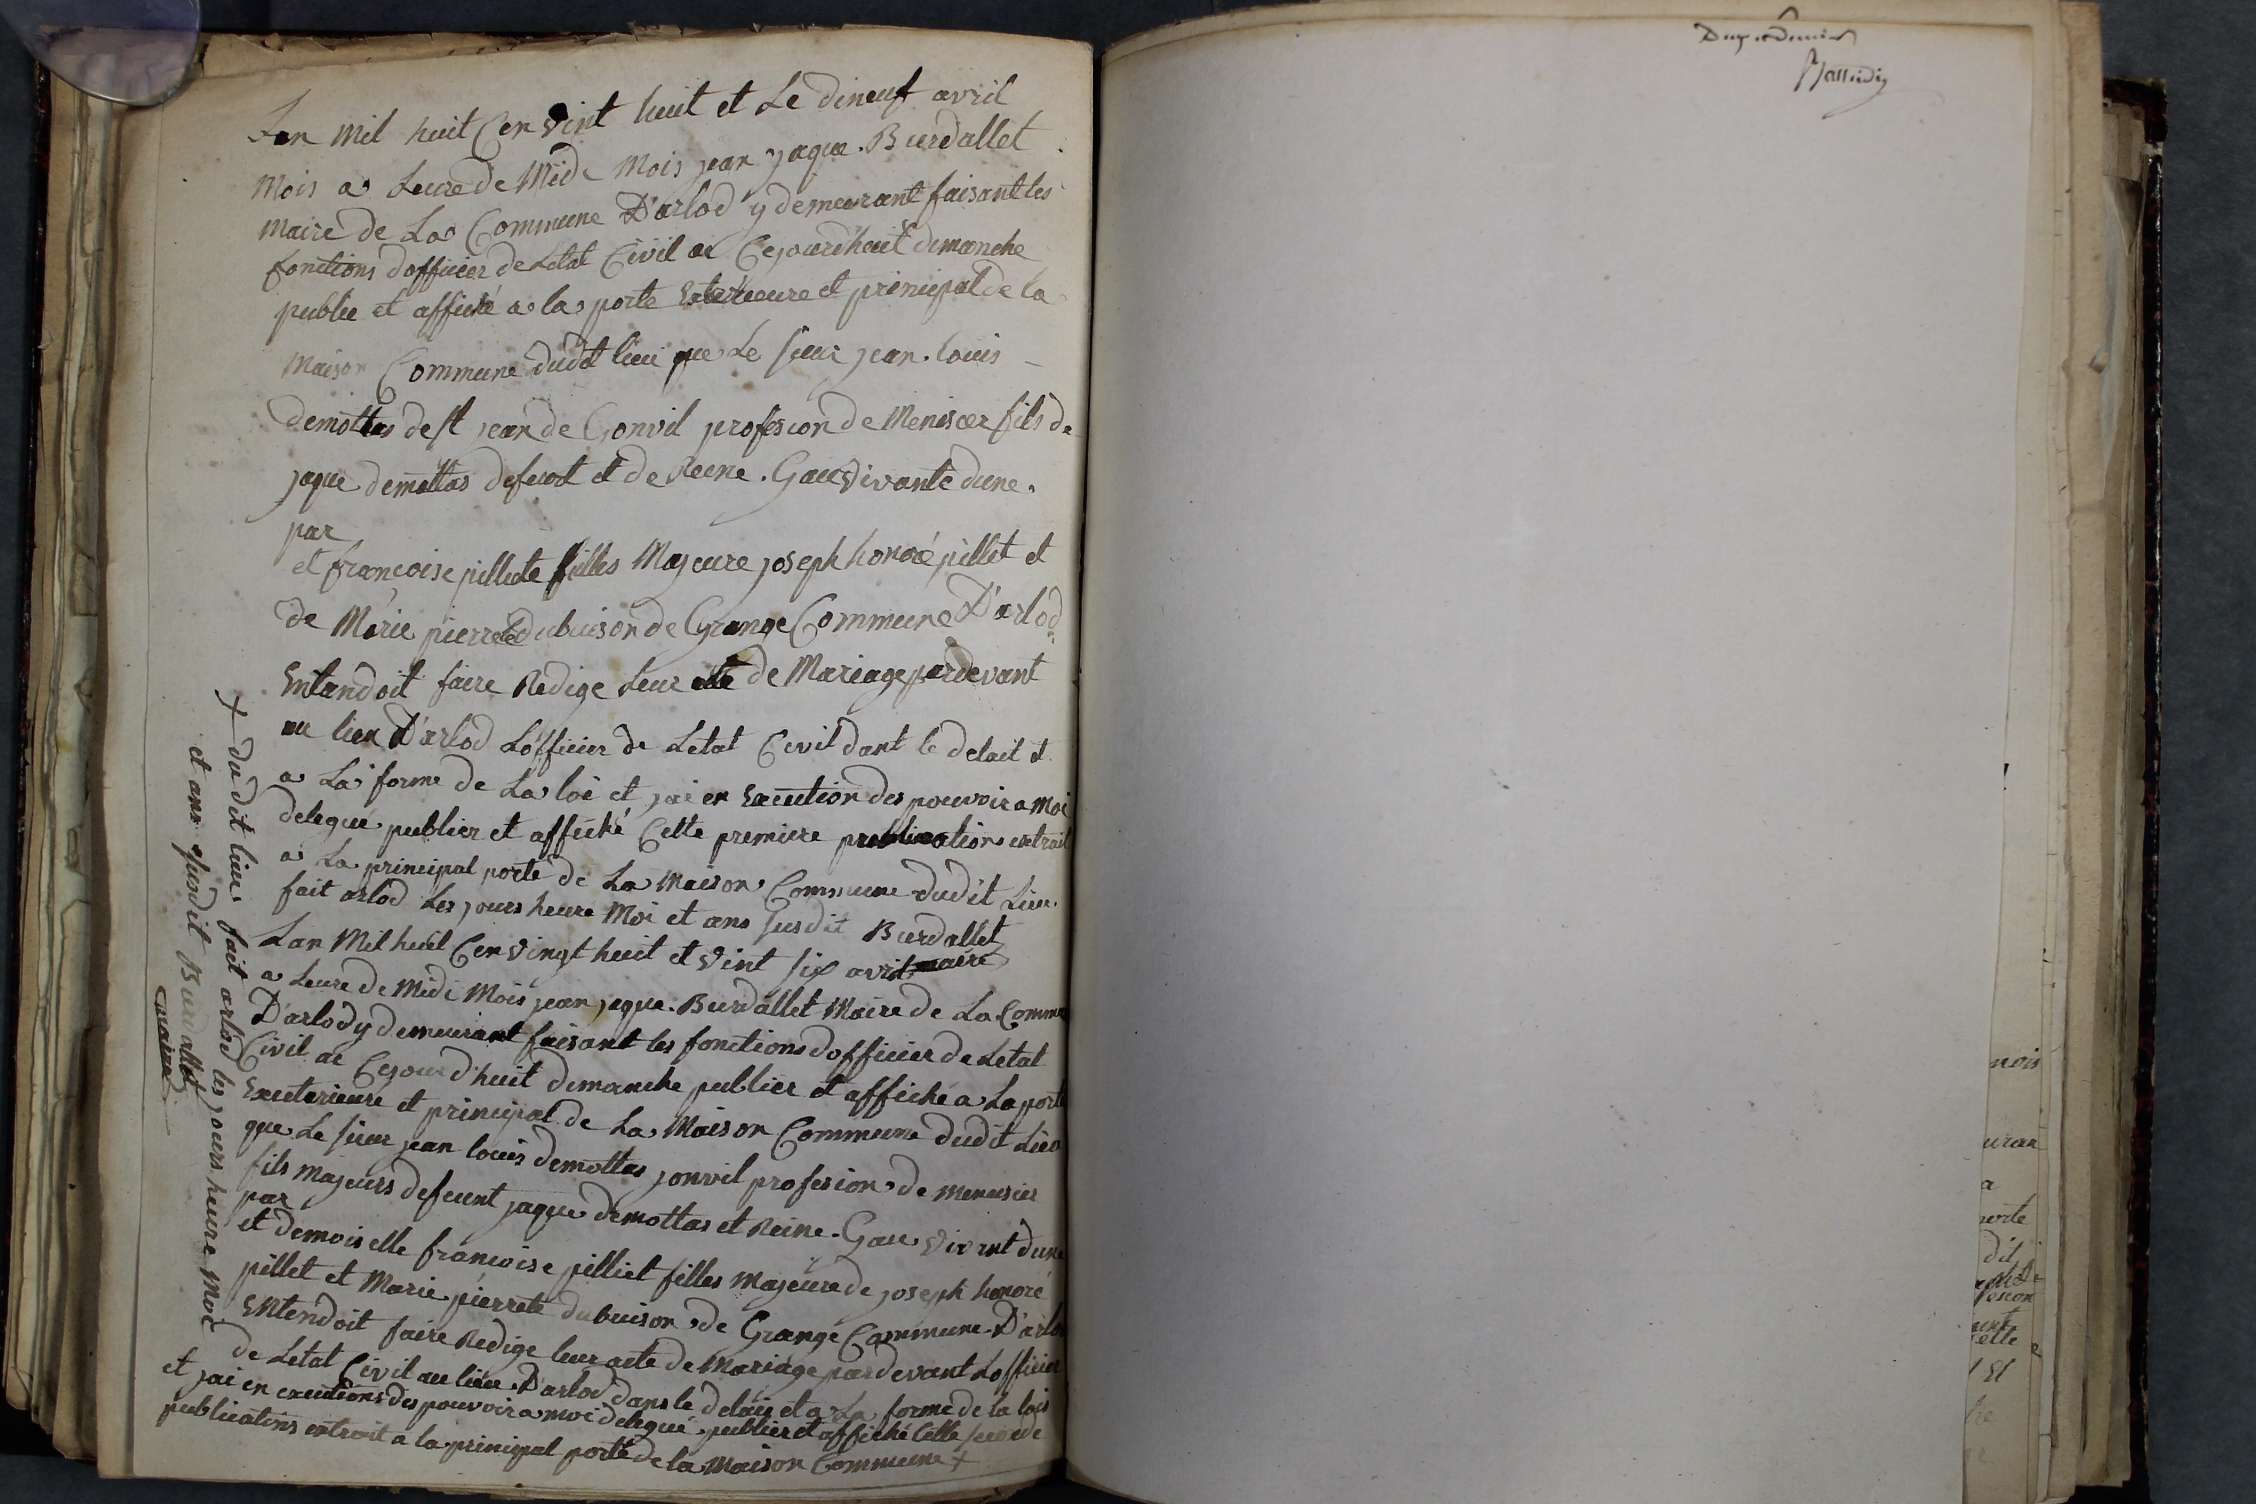 Lan mil huit Cen vint huit et Le dineuf avril
Mois a Leure de Mide Mois jean jaque. Burdallet
Maire de La Commune D'arlod y demeurant faisant les
fonctions dofficier de Letat Civil ai Cejourdhuit dimanche
publie et affiché a la porte Exterieure et principal de la
Maison Commune dudit lieu que Le sieur jean. louis
demottas de st jean de Gonvil profesion de Meniser fils de
jaque demottas defunt et de Reine. Gau vivante dune
par
et francoise pillete filles Majeure joseph honoré pillet et
de Marie pierrete dubuison de Grange Commune D'arlod
Entandoit faire Redige Leur acte de Mariage pardevant
au lieu D'arlod Lofficier de Letat Civil dant le delait et
a La forme de La loi et jai en Execution des pouvoir a Moi
delegue publier et affiché Cette premiere publication extrait
a La principal porte de La Maison Commune dudit Lieu.
fait arlod Les jours heure Moi et ans susdit Burdallet
maire
Lan Mil huit Cen vingt huit et vint six avril
a Leure de Midi Mois jean jaque. Burdallet Maire de La Commu
D'arlod y demeurant faisant les fonctions dofficier de Letat
Civil ai Cejourd'huit dimanche publier et affiché a La porte
Exterieure et principal de La Maison Commune dudit Lieu
que Le sieur jean louis demottas jonvil profesion de menusier
fils majeurs defeunt jaque demottas et Reine. Gau vivant dune
par
et demoiselle francoise pilliet filles majeure de joseph honoré
pillet et Marie pierrete dubuison de Grange Commune D'arlod
Entendoit faire Redige leur acte de Mariage pardevant Lofficier
de Letat Civil au lieu D'arlod dans le delai et a La forme de la loi
et jai en executions des pouvoir a moi delegué publier et affiché Cette seconde
publications extrait a la principal porte de la Maison Commune +
+ du dit lieu fait arlod les jours heure Moi
et ans susdit Burdallet
maire
nois
uran
a
porte
dit